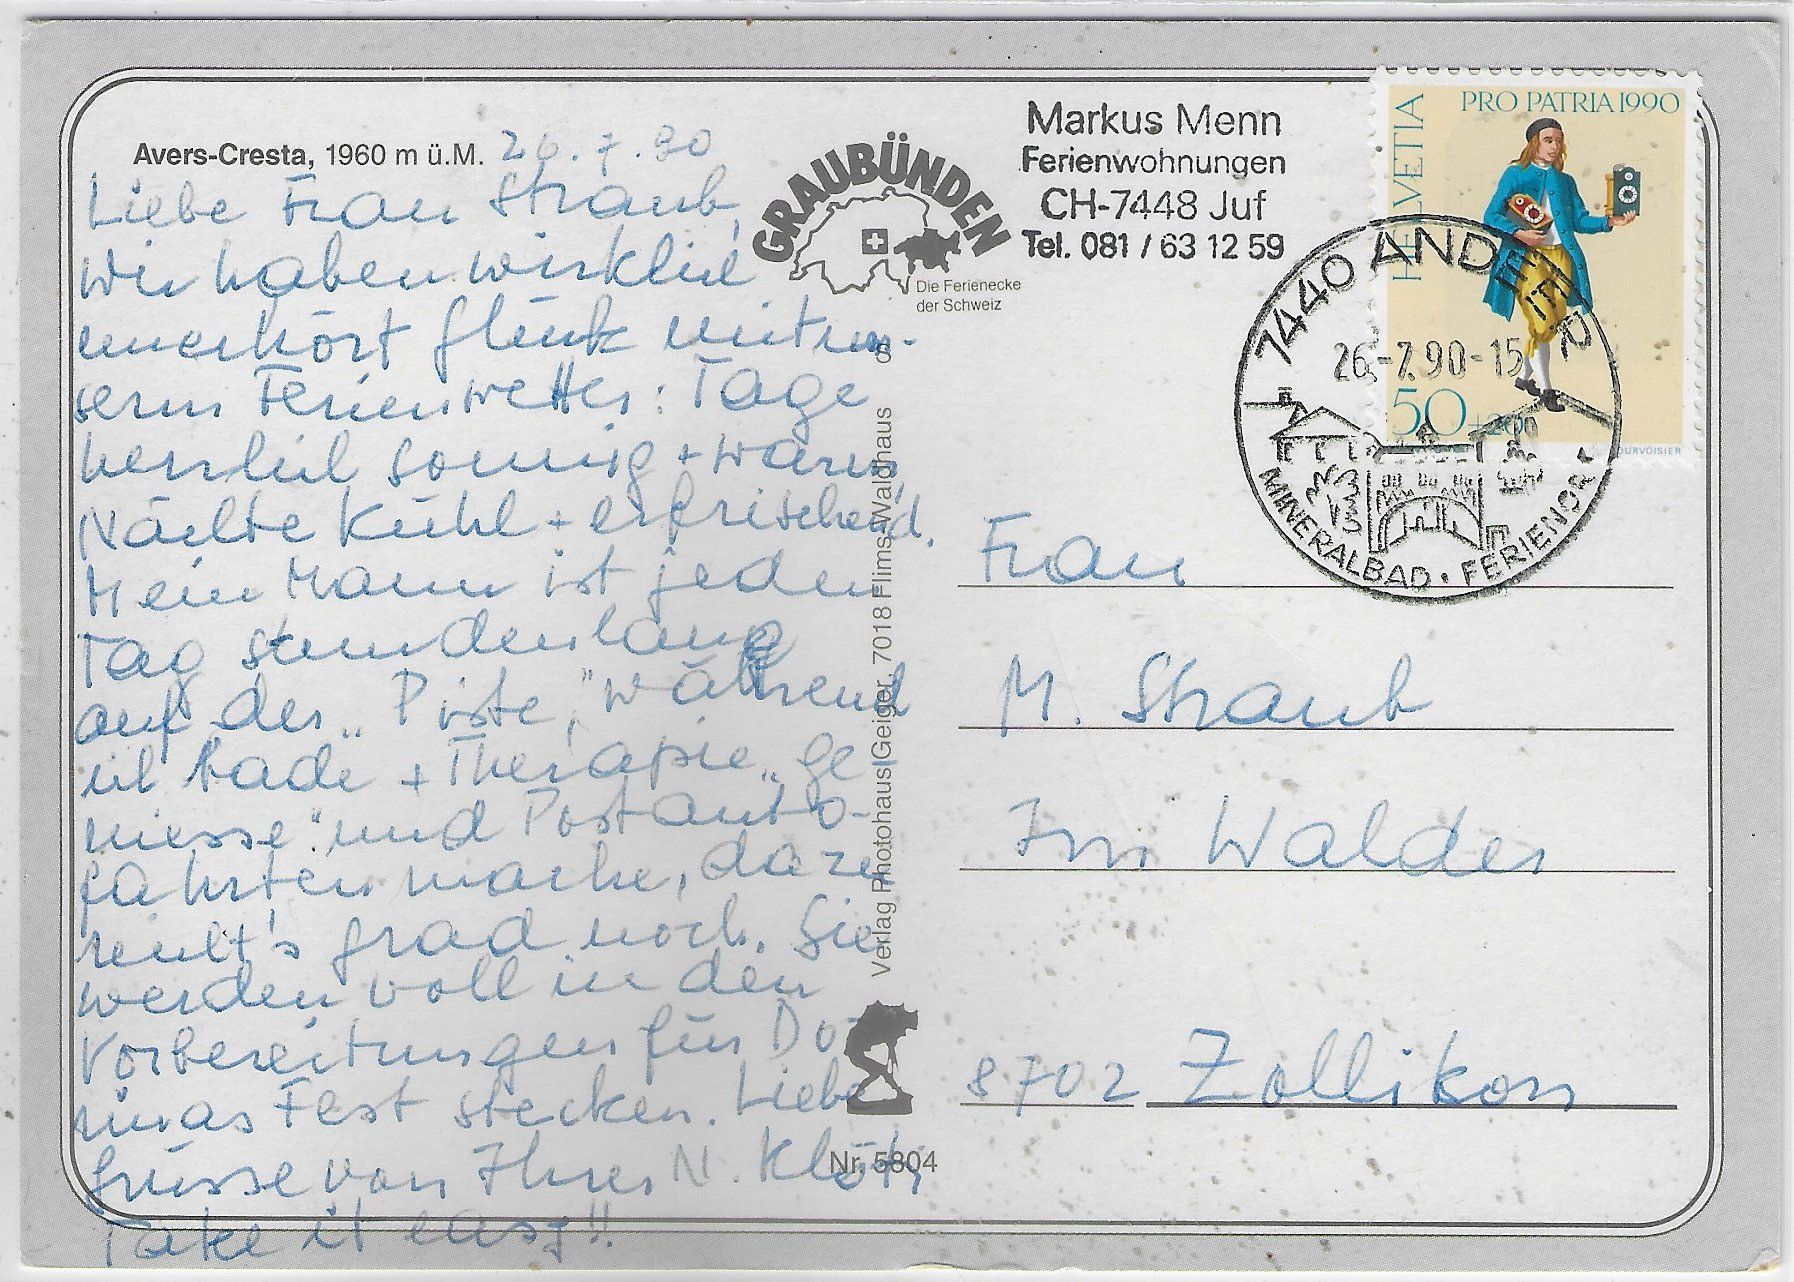 Avers-Cresta, 1960 m ü.M. 26.7.90
Liebe Frau Straub,
wir haben wirklich
unerhört Glück mit un-
serm Ferienwetter: Tage
herrlich sonnig + warm,
Nächte kühl + erfrischend.
Mein Mann ist jeden
Tag stundenlang
auf der „Piste", während
ich Bade + Therapie „ge
niesse" und Postauto-
fahrten mache, dazu
reicht's grad noch. Sie
werden voll in den
Vorbereitungen für Do-
rinas Fest stecken. Liebe
Grüsse von Ihrer N. Klöti
Take it easy!!
GRAUBÜNDEN
Die Ferienecke
der Schweiz
Markus Menn
Ferienwohnungen
CH-7448 Juf
Tel. 081 / 63 12 59
PRO PATRIA 1990
HELVETIA
50+20
COURVOISIER
7440 ANDEER
26.-7.90-15
MINERALBAD · FERIENORT
Verlag Photohaus Geiger, 7018 Flims-Waldhaus
Nr. 5804
Frau
M. Straub
Im Walder
8702 Zollikon